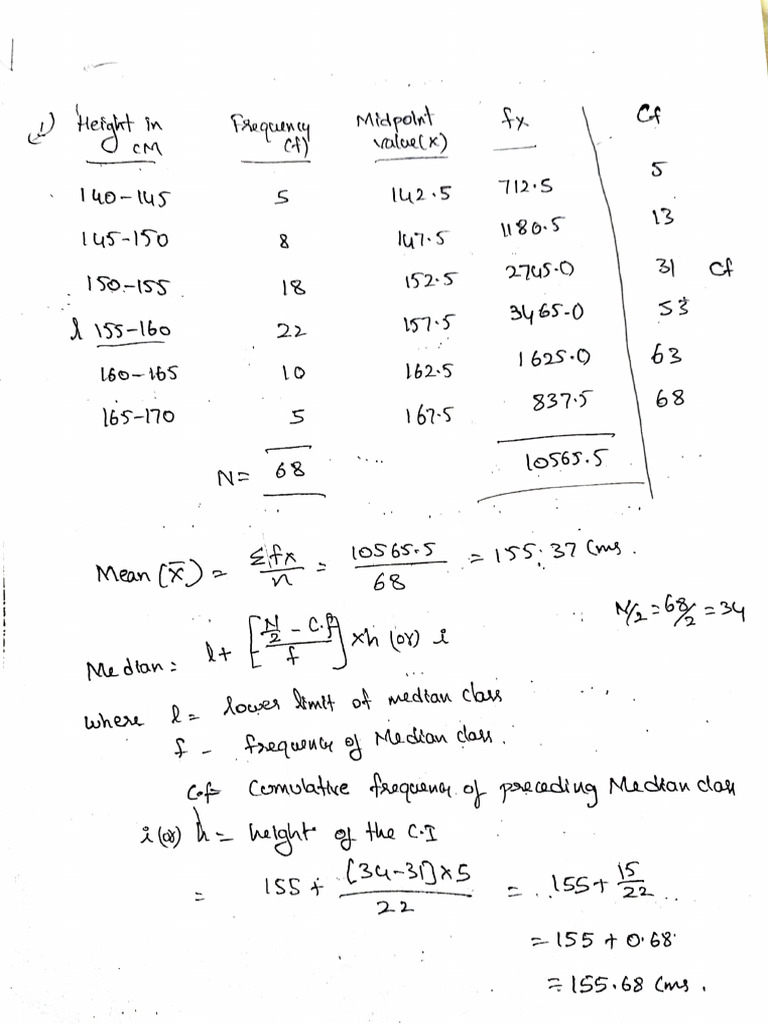 1) Height in CM Frequency (f) Midpoint value(x) fx Cf
140-145 5 142.5 712.5 5
145-150 8 147.5 1180.5 13
150-155 18 152.5 2745.0 31 Cf
l 155-160 22 157.5 3465.0 53
160-165 10 162.5 1625.0 63
165-170 5 167.5 837.5 68
N= 68 10565.5
Mean (x̅) = Σfx/n = 10565.5/68 = 155.37 Cms.
N/2 = 68/2 = 34
Median = l+ [N/2 - C.f / f] xh (or) i
where l = lower limit of median class
f - frequency of Median class.
C.f= Cumulative frequency of preceding Median class
i (or) h = height of the C.I
= 155 + (34-31)x5 / 22 = 155 + 15/22
= 155 + 0.68
= 155.68 Cms.